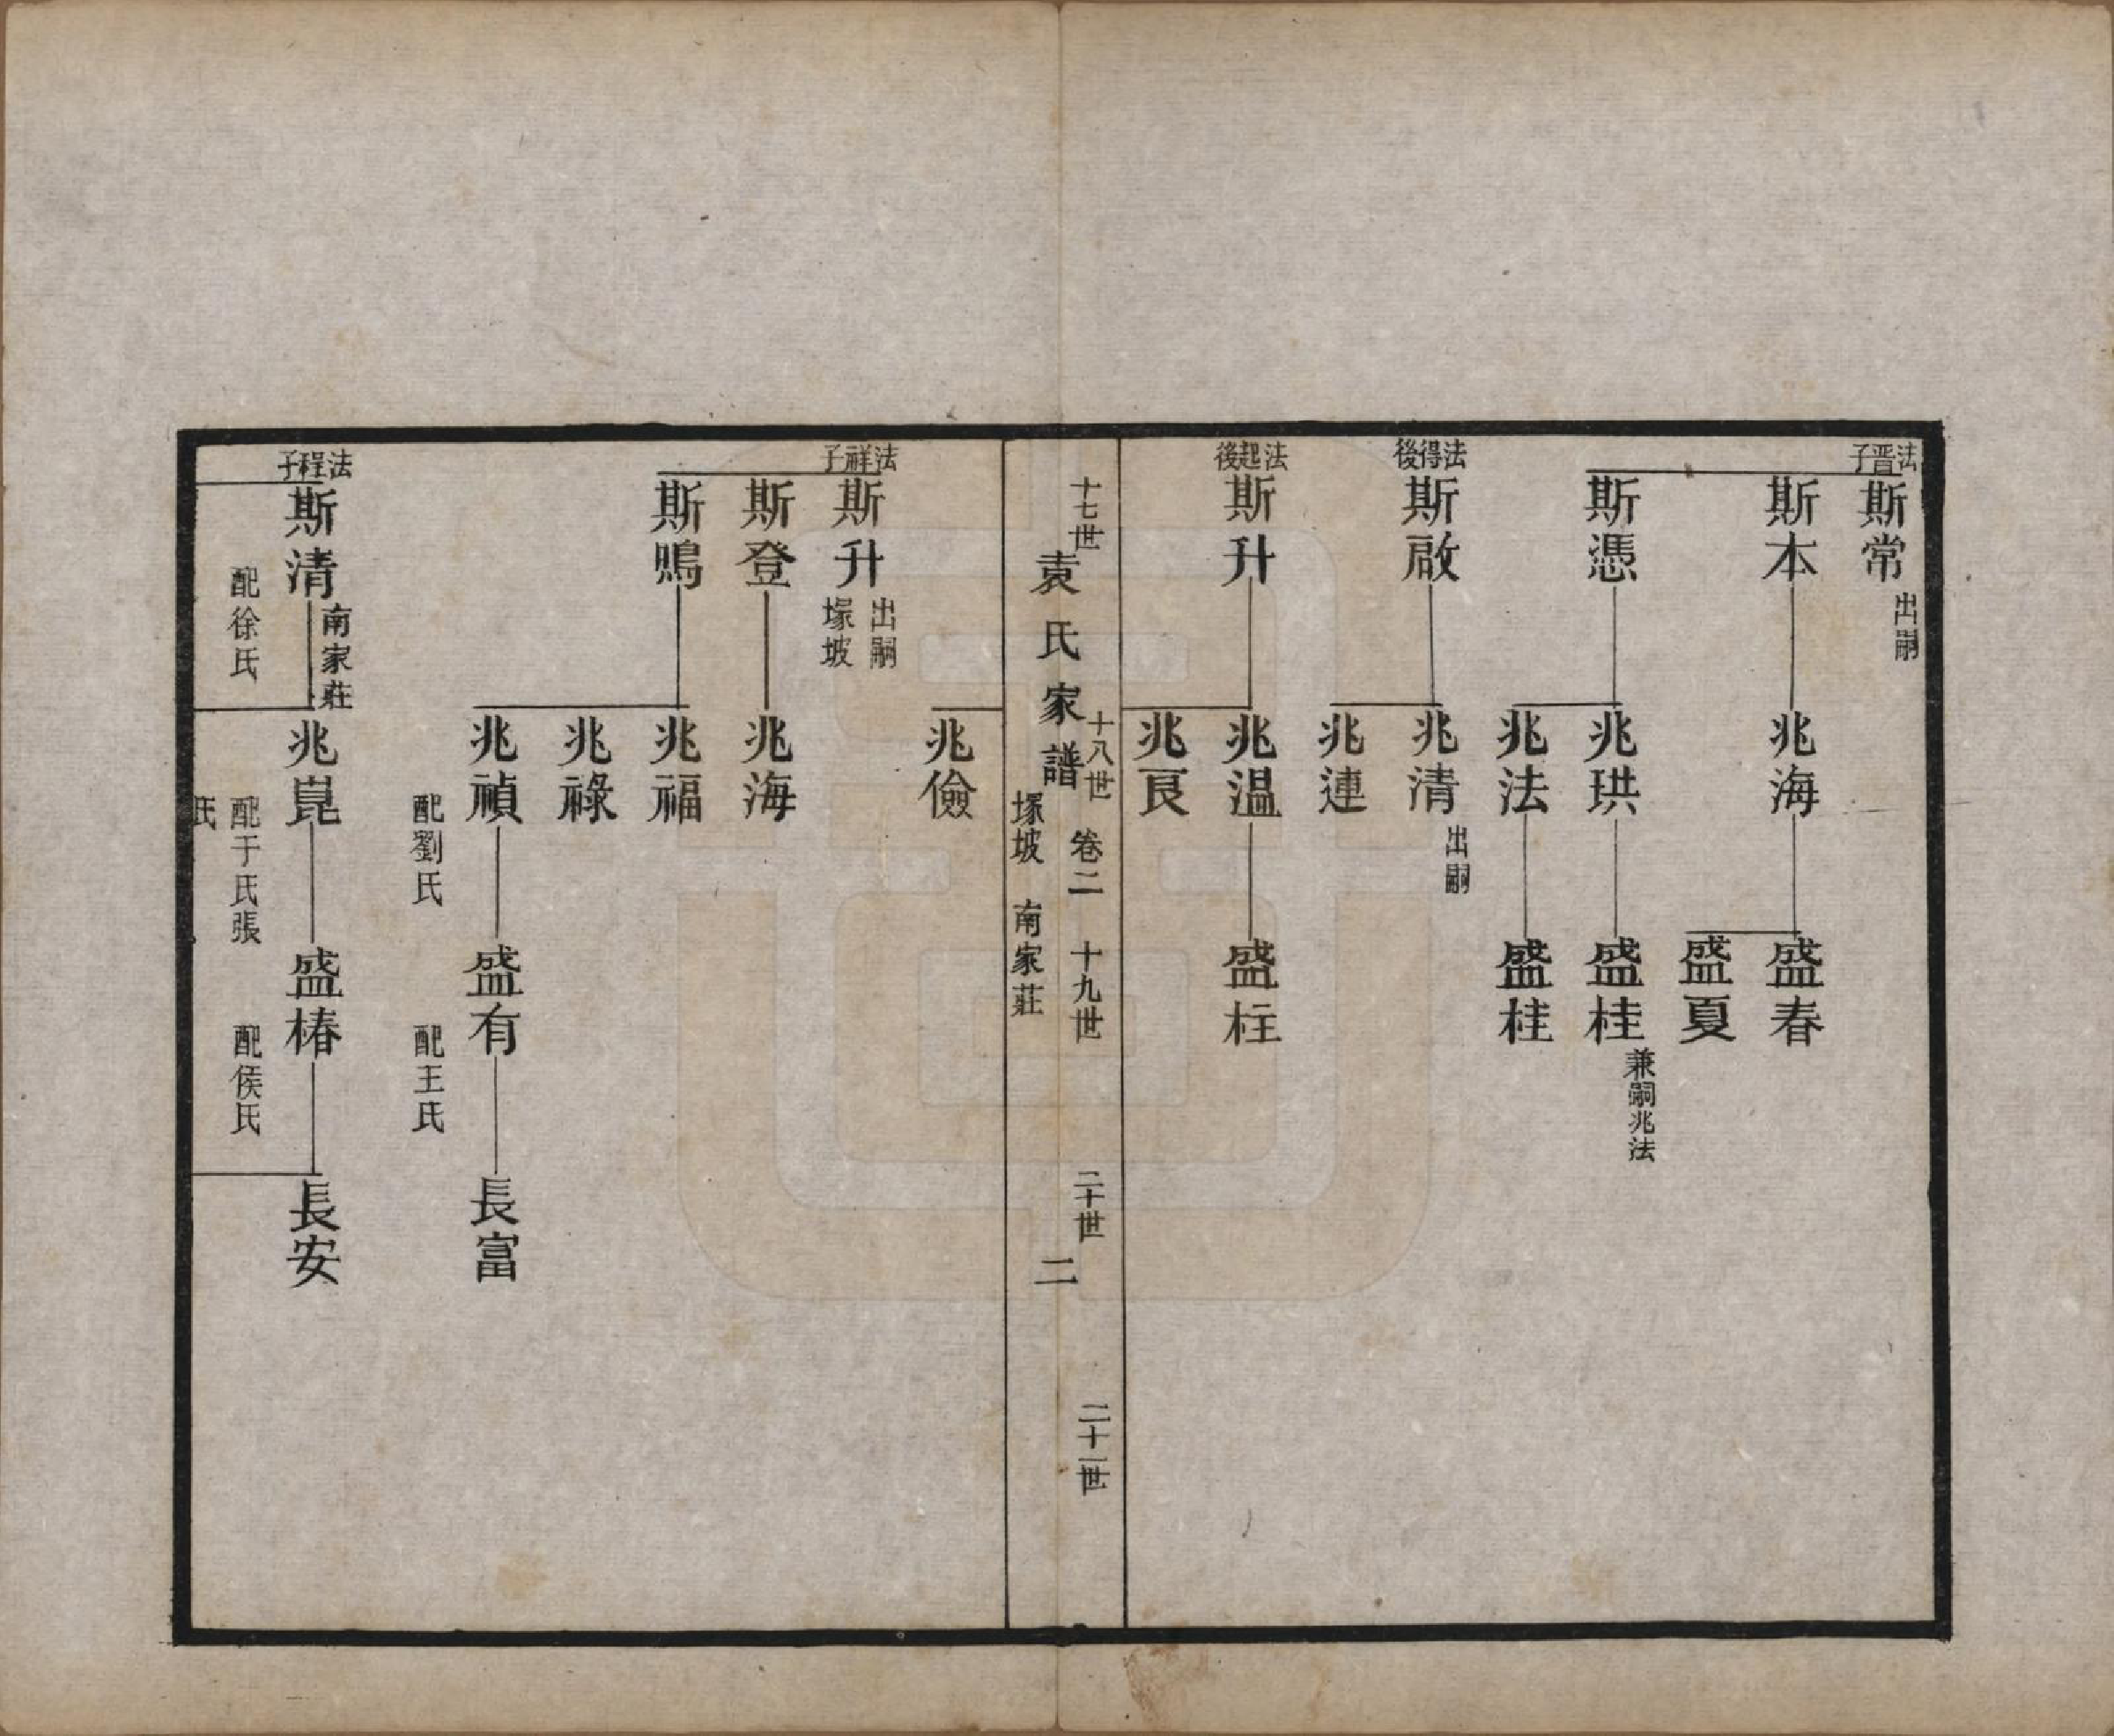 法晋子
斯常
出嗣
斯本
兆海
盛春
盛夏
斯憑
兆珙
盛桂
兼嗣兆法
兆法
盛桂
法得後
斯啟
兆清
出嗣
兆連
法起後
斯升
兆温
盛柱
兆良
十七世 十八世 十九世 二十世 二十一世
袁氏家譜 卷二 二
塚坡 南家莊
兆儉
法祥子
斯升
出嗣
塚坡
斯登
兆海
斯鳴
兆福
兆祿
兆禎
配劉氏
盛有
配王氏
長富
法程子
斯清
南家莊
配徐氏
兆崑
配于氏張
氏
盛椿
配侯氏
長安